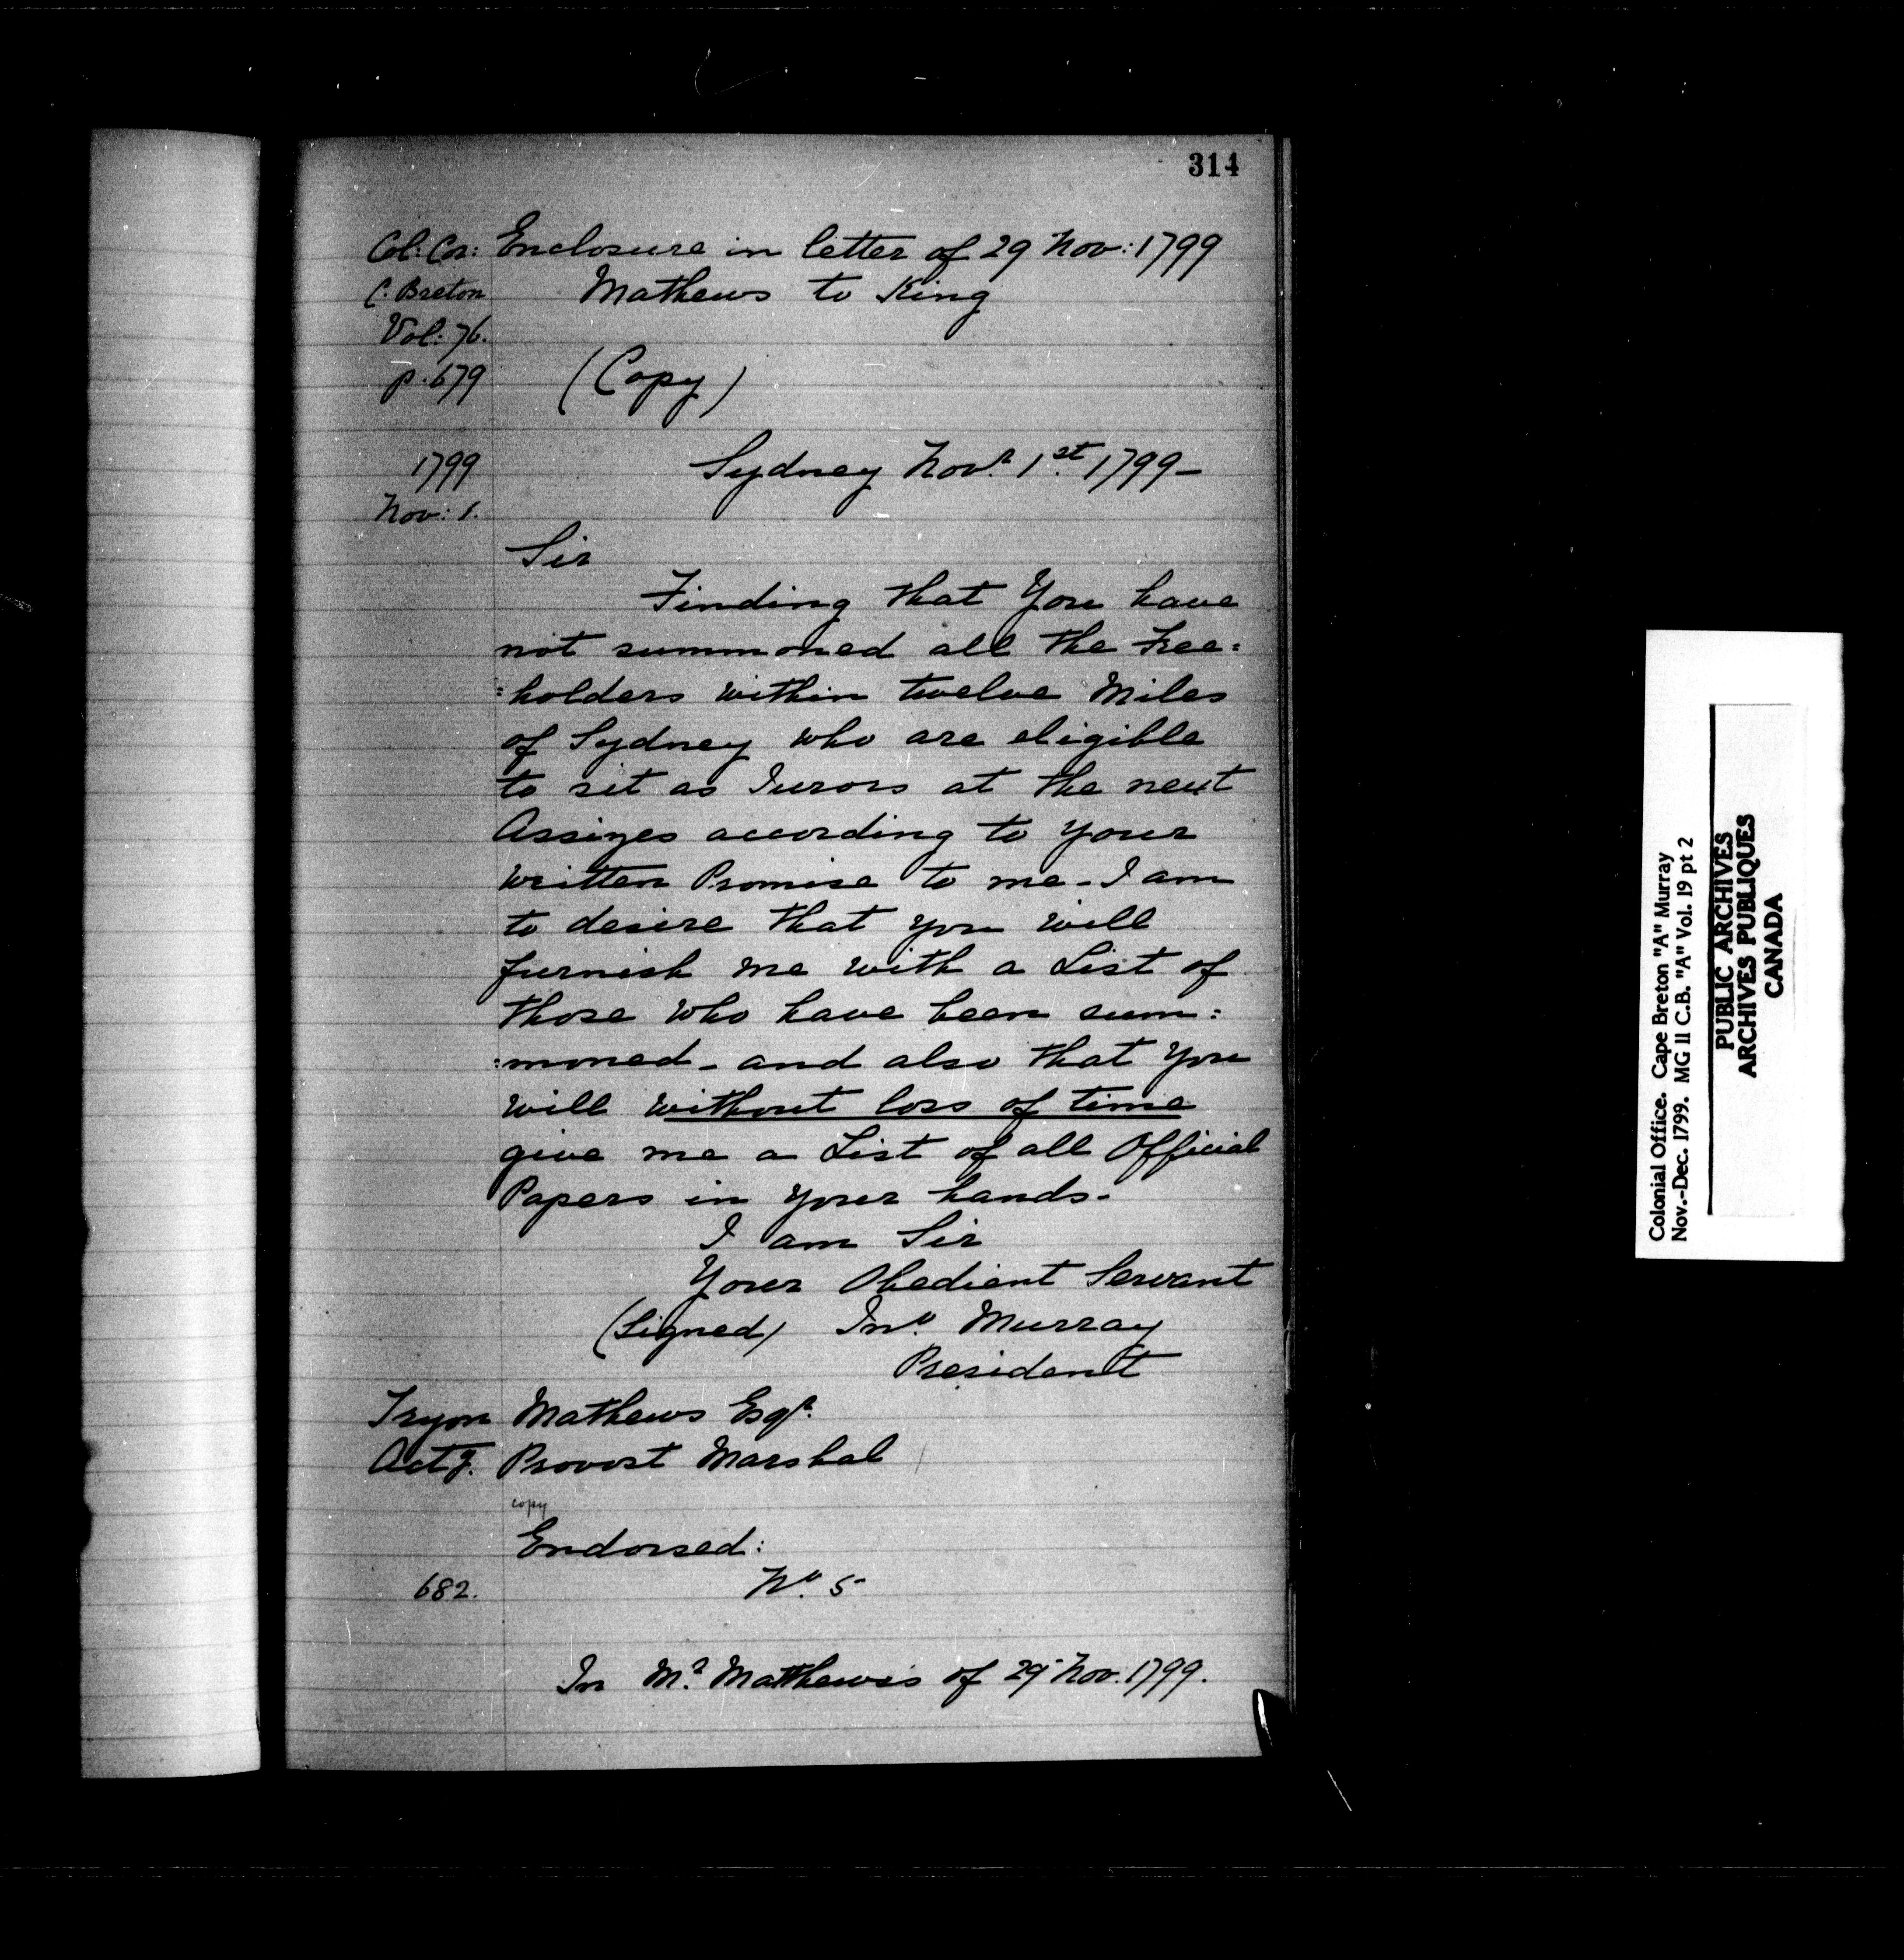 314
Col: Cor: Enclosure in letter of 29 Nov: 1799
C. Breton Mathews to King
Vol: 76.
p. 679 (Copy)
1799 Sydney Novr. 1st. 1799 –
Nov: 1.
Sir
Finding that You have
not summoned all the Free:
:holders within twelve Miles
of Sydney who are eligible
to sit as Jurors at the next
Assizes according to your
written Promise to me – I am
to desire that you will
furnish me with a List of
those who have been sum:
:moned – and also that you
will without loss of time
give me a List of all Official
Papers in your hands –
I am Sir
Your Obedient Servant
(Signed) Jno. Murray
President
Tryon Mathews Esqr.
Actg. Provost Marshal
copy
Endorsed:
682. No. 5
In Mr. Matthews's of 29 Nov: 1799.
Colonial Office. Cape Breton "A" Murray
Nov.-Dec. 1799. MG 11 C.B. "A" Vol. 19 pt 2
PUBLIC ARCHIVES
ARCHIVES PUBLIQUES
CANADA